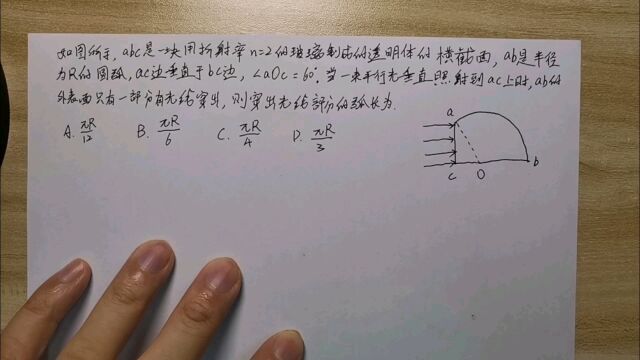 如图所示，abc是一块用折射率n=2的玻璃制成的透明体的横截面，ab是半径
为R的圆弧，ac边垂直于bc边，∠aOc=60°，当一束平行光垂直照射到ac上时，ab的
外表面只有一部分有光线穿出，则穿出光线部分的弧长为
A. πR/12 B. πR/6 C. πR/4 D. πR/3
a
c O b